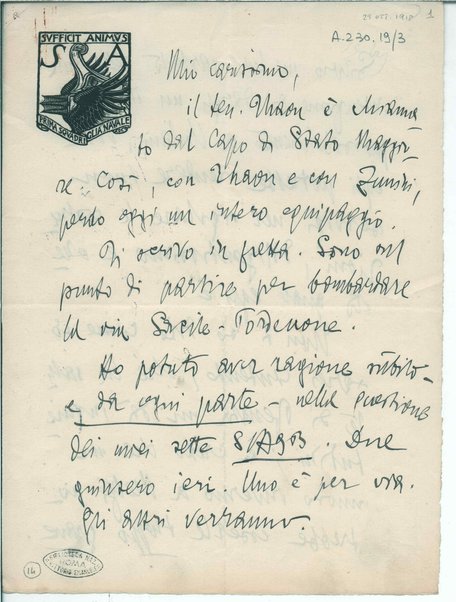 25 ott. 1918
1
A.230.19/3
SVFFICIT ANIMVS
S A
PRIMA SQUADRIGLIA NAVALE
Mio carissimo,
il ten. Thaon è chiama
to dal Capo di Stato Maggio
re. Così, con Thaon e con
perdo oggi un intero equipaggio.
Ti scrivo in fretta. Sono sul
punto di partire per bombardare
la via Sacile-Pordenone.
Ho potuto aver ragione subito -
e da ogni parte - nella questione
dei miei sette SIA9B. Due
giunsero ieri. Uno è per via.
Gli altri verranno.
14
BIBLIOTECA NAZ.
ROMA
VITTORIO EMANUELE